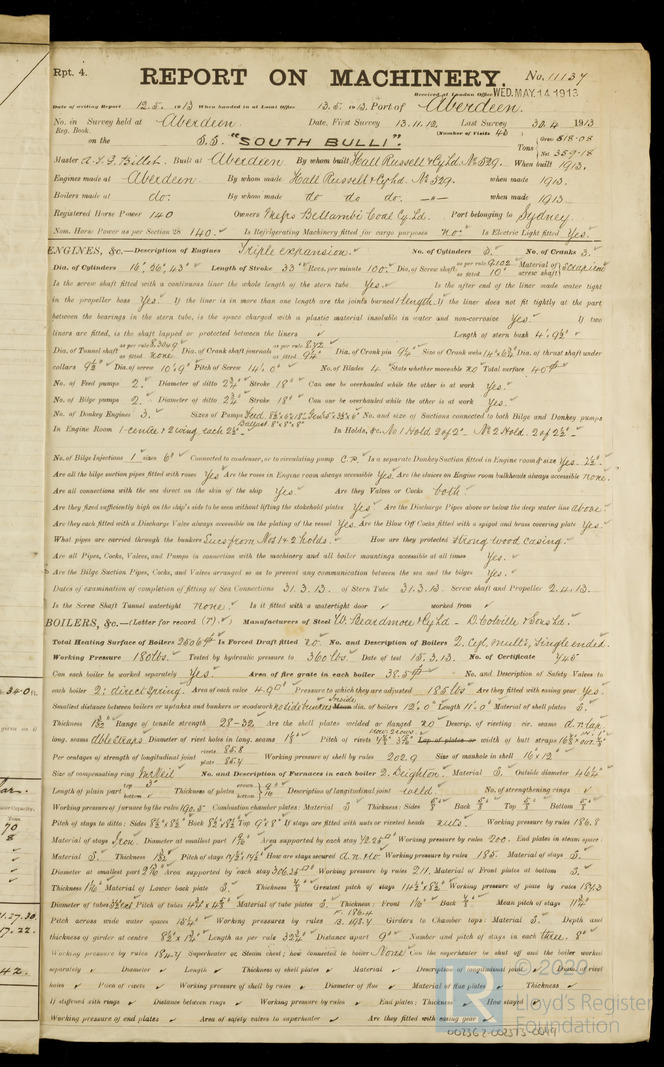 Rpt. 4.
REPORT ON MACHINERY.
No. 11137
Received at London Office WED. MAY. 14 1913
Date of writing Report 12.5. 1913 When handed in at Local Office 13.5. 1913. Port of Aberdeen.
No. in Survey held at Aberdeen Date, First Survey 13.11.12. Last Survey 30.4 1913
Reg. Book. (Number of Visits 40)
on the S.S. "SOUTH BULLI". Tons Gross 818.08
Net 359.18
Master Built at Aberdeen By whom built Hall Russell & Co Ld. No 529. When built 1913.
Engines made at Aberdeen By whom made Hall Russell & Co Ld. No 529. when made 1913.
Boilers made at do. By whom made do do do. when made 1913.
Registered Horse Power 140 Owners Messrs Bellambi Coal Cy. Ld. Port belonging to Sydney.
Nom. Horse Power as per Section 28 140. Is Refrigerating Machinery fitted for cargo purposes No. Is Electric Light fitted Yes.
ENGINES, &c.—Description of Engines Triple expansion. No. of Cylinders 3. No. of Cranks 3.
Dia. of Cylinders 16", 26", 43" Length of Stroke 33" Revs. per minute 100. Dia. of Screw shaft as per rule 9.102 as fitted 10" Material of screw shaft Scrap iron
Is the screw shaft fitted with a continuous liner the whole length of the stern tube Yes. Is the after end of the liner made water tight
in the propeller boss Yes. If the liner is in more than one length are the joints burned 1 length. If the liner does not fit tightly at the part
between the bearings in the stern tube, is the space charged with a plastic material insoluble in water and non-corrosive Yes. If two
liners are fitted, is the shaft lapped or protected between the liners Length of stern bush 4'. 9½"
Dia. of Tunnel shaft as per rule as fitted none. Dia. of Crank shaft journals as per rule as fitted 9¼" Dia. of Crank pin 9¼" Size of Crank webs Dia. of thrust shaft under
collars 9½" Dia. of screw 10'.9" Pitch of Screw 14'. 0" No. of Blades 4. State whether moveable No Total surface 40
No. of Feed pumps 2. Diameter of ditto 2¾" Stroke 18" Can one be overhauled while the other is at work Yes.
No. of Bilge pumps 2. Diameter of ditto 2¾" Stroke 18" Can one be overhauled while the other is at work Yes.
No. of Donkey Engines 3. Sizes of Pumps No. and size of Suctions connected to both Bilge and Donkey pumps
Ballast 8" x 8" x 8"
In Engine Room 1-centre & 2 wing each 2½". In Holds, &c. No 1 Hold 2 of 2". No 2 Hold. 2 of 2½".
No. of Bilge Injections 1 sizes 6" Connected to condenser, or to circulating pump C.P. Is a separate Donkey Suction fitted in Engine room & size Yes. 2½".
Are all the bilge suction pipes fitted with roses Yes Are the roses in Engine room always accessible Yes. Are the sluices on Engine room bulkheads always accessible none.
Are all connections with the sea direct on the skin of the ship Yes. Are they Valves or Cocks both
Are they fixed sufficiently high on the ship's side to be seen without lifting the stokehold plates Yes. Are the Discharge Pipes above or below the deep water line above.
Are they each fitted with a Discharge Valve always accessible on the plating of the vessel Yes. Are the Blow Off Cocks fitted with a spigot and brass covering plate Yes.
What pipes are carried through the bunkers Sucs from Nos 1 & 2 holds. How are they protected strong wood casing.
Are all Pipes, Cocks, Valves, and Pumps in connection with the machinery and all boiler mountings accessible at all times Yes.
Are the Bilge Suction Pipes, Cocks, and Valves arranged so as to prevent any communication between the sea and the bilges Yes.
Dates of examination of completion of fitting of Sea Connections 31.3.13. of Stern Tube 31.3.13 Screw shaft and Propeller 2.4.13.
Is the Screw Shaft Tunnel watertight none. Is it fitted with a watertight door worked from
BOILERS, &c.—(Letter for record (r).) Manufacturers of Steel W. Beardmore & Cy Ld - D. Colville & Sons Ld.
Total Heating Surface of Boilers 2506 Is Forced Draft fitted No. No. and Description of Boilers 2. Cyl, Multi, Single ended.
Working Pressure 180 lbs. Tested by hydraulic pressure to 360 lbs. Date of test 15.3.13. No. of Certificate 745
Can each boiler be worked separately Yes. Area of fire grate in each boiler 38.5 No. and Description of Safety Valves to
each boiler 2: direct spring. Area of each valve 4.9 Pressure to which they are adjusted 185 lbs Are they fitted with easing gear Yes.
Smallest distance between boilers or uptakes and bunkers or woodwork no side bunkers Inside dia. of boilers 12'.0" Length 11'.0" Material of shell plates S.
Thickness Range of tensile strength 28-32 Are the shell plates welded or flanged No Descrip. of riveting: cir. seams d.r.lap.
long. seams dble straps Diameter of rivet holes in long. seams Pitch of rivets Lap of plates or width of butt straps
Per centages of strength of longitudinal joint rivets 85.8 plate 85.4 Working pressure of shell by rules 202.9 Size of manhole in shell 16" x 12"
Size of compensating ring McNeil No. and Description of Furnaces in each boiler 2. Deighton. Material S. Outside diameter 46¼"
Length of plain part top bottom Thickness of plates crown bottom Description of longitudinal joint weld. No. of strengthening rings
Working pressure of furnace by the rules 190.5 Combustion chamber plates: Material S Thickness: Sides Back Top Bottom
Pitch of stays to ditto: Sides 8½" x 8½" Back 8½" x 8½" Top 9" x 8" If stays are fitted with nuts or riveted heads nuts. Working pressure by rules 186.8
Material of stays Iron. Diameter at smallest part Area supported by each stay Working pressure by rules 200. End plates in steam space
Material S. Thickness Pitch of stays How are stays secured d.n. &c. Working pressure by rules 185. Material of stays S.
Diameter at smallest part Area supported by each stay Working pressure by rules 211. Material of Front plates at bottom S.
Thickness Material of Lower back plate S. Thickness Greatest pitch of stays 14½" x 8½" Working pressure of plate by rules
Diameter of tubes Pitch of tubes Material of tube plates S. Thickness: Front Back Mean pitch of stays
Pitch across wide water spaces Working pressures by rules Girders to Chamber tops: Material S. Depth and
thickness of girder at centre Length as per rule Distance apart 9" Number and pitch of stays in each three. 8"
Working pressure by rules 184.7 Superheater or Steam chest; how connected to boiler None Can the superheater be shut off and the boiler worked
separately Diameter Length Thickness of shell plates Material Description of longitudinal joint Diam. of rivet
holes Pitch of rivets Working pressure of shell by rules Diameter of flue Material of flue plates Thickness
If stiffened with rings Distance between rings Working pressure by rules End plates: Thickness How stayed
Working pressure of end plates Area of safety valves to superheater Are they fitted with easing gear
© 2020
Lloyd's Register
Foundation
002562-002573-0099